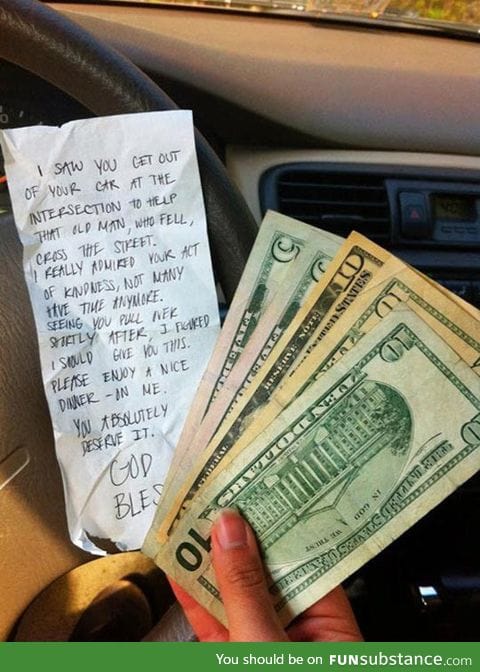 I SAW YOU GET OUT
OF YOUR CAR AT THE
INTERSECTION TO HELP
THAT OLD MAN, WHO FELL,
CROSS THE STREET.
I REALLY ADMIRED YOUR ACT
OF KINDNESS, NOT MANY
HAVE TIME ANYMORE.
SEEING YOU PULL OVER
SHORTLY AFTER, I FIGURED
I SHOULD GIVE YOU THIS.
PLEASE ENJOY A NICE
DINNER - ON ME.
YOU ABSOLUTELY
DESERVE IT.
GOD
BLES
5
10
RESERVE NOTE
10
10
IN GOD
WE TRUST
10
You should be on FUNsubstance.com